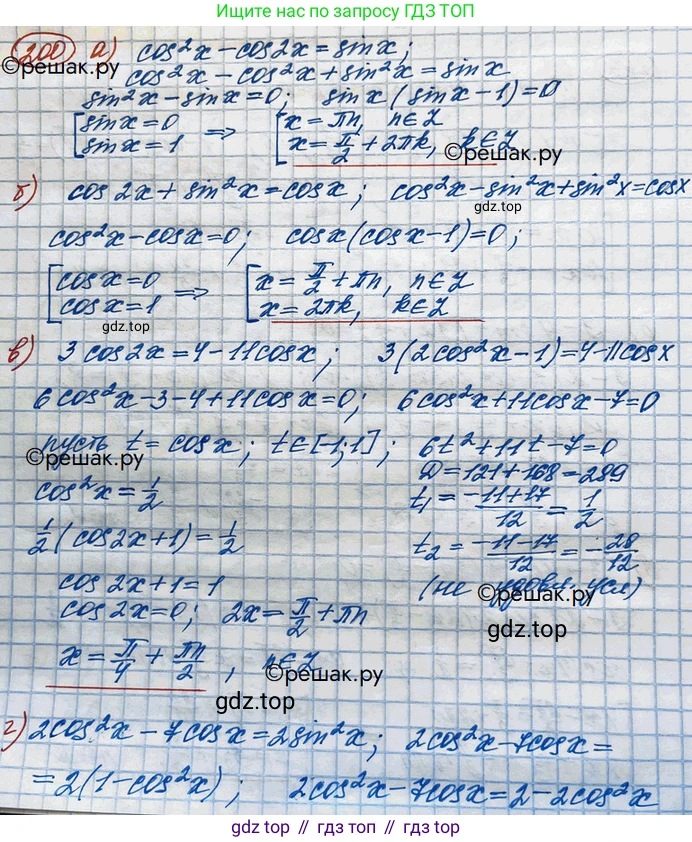 Ищите нас по запросу ГДЗ ТОП
200 а) cos²x - cos2x = sinx;
©решак.ру
cos²x - cos²x + sin²x = sinx
sin²x - sinx = 0; sinx (sinx - 1) = 0
[sinx = 0 ⇒ [x = πn, n∈Z
sinx = 1 x = π/2 + 2πk, k∈Z
©решак.ру
б) cos 2x + sin²x = cosx; cos²x - sin²x + sin²x = cosx
gdz.top
cos²x - cosx = 0; cosx (cosx - 1) = 0;
[cosx = 0 ⇒ [x = π/2 + πn, n∈Z
cosx = 1 x = 2πk, k∈Z
gdz.top
в) 3 cos2x = 4 - 11cosx; 3(2cos²x - 1) = 4 - 11cosx
6cos²x - 3 - 4 + 11cosx = 0; 6cos²x + 11cosx - 7 = 0
пусть t = cosx; t∈[-1;1]; 6t² + 11t - 7 = 0
©решак.ру
D = 121 + 168 = 289
cos²x = 1/2
t₁ = (-11+17)/12 = 1/2
1/2 (cos2x + 1) = 1/2
t₂ = (-11-17)/12 = -28/12
cos 2x + 1 = 1
(не удовл. усл)
©решак.ру
cos2x = 0; 2x = π/2 + πn
gdz.top
x = π/4 + πn/2, n∈Z
©решак.ру
gdz.top
г) 2cos²x - 7cosx = 2sin²x; 2cos²x - 7cosx =
= 2(1 - cos²x); 2cos²x - 7cosx = 2 - 2cos²x
gdz.top // гдз.топ // gdz.top